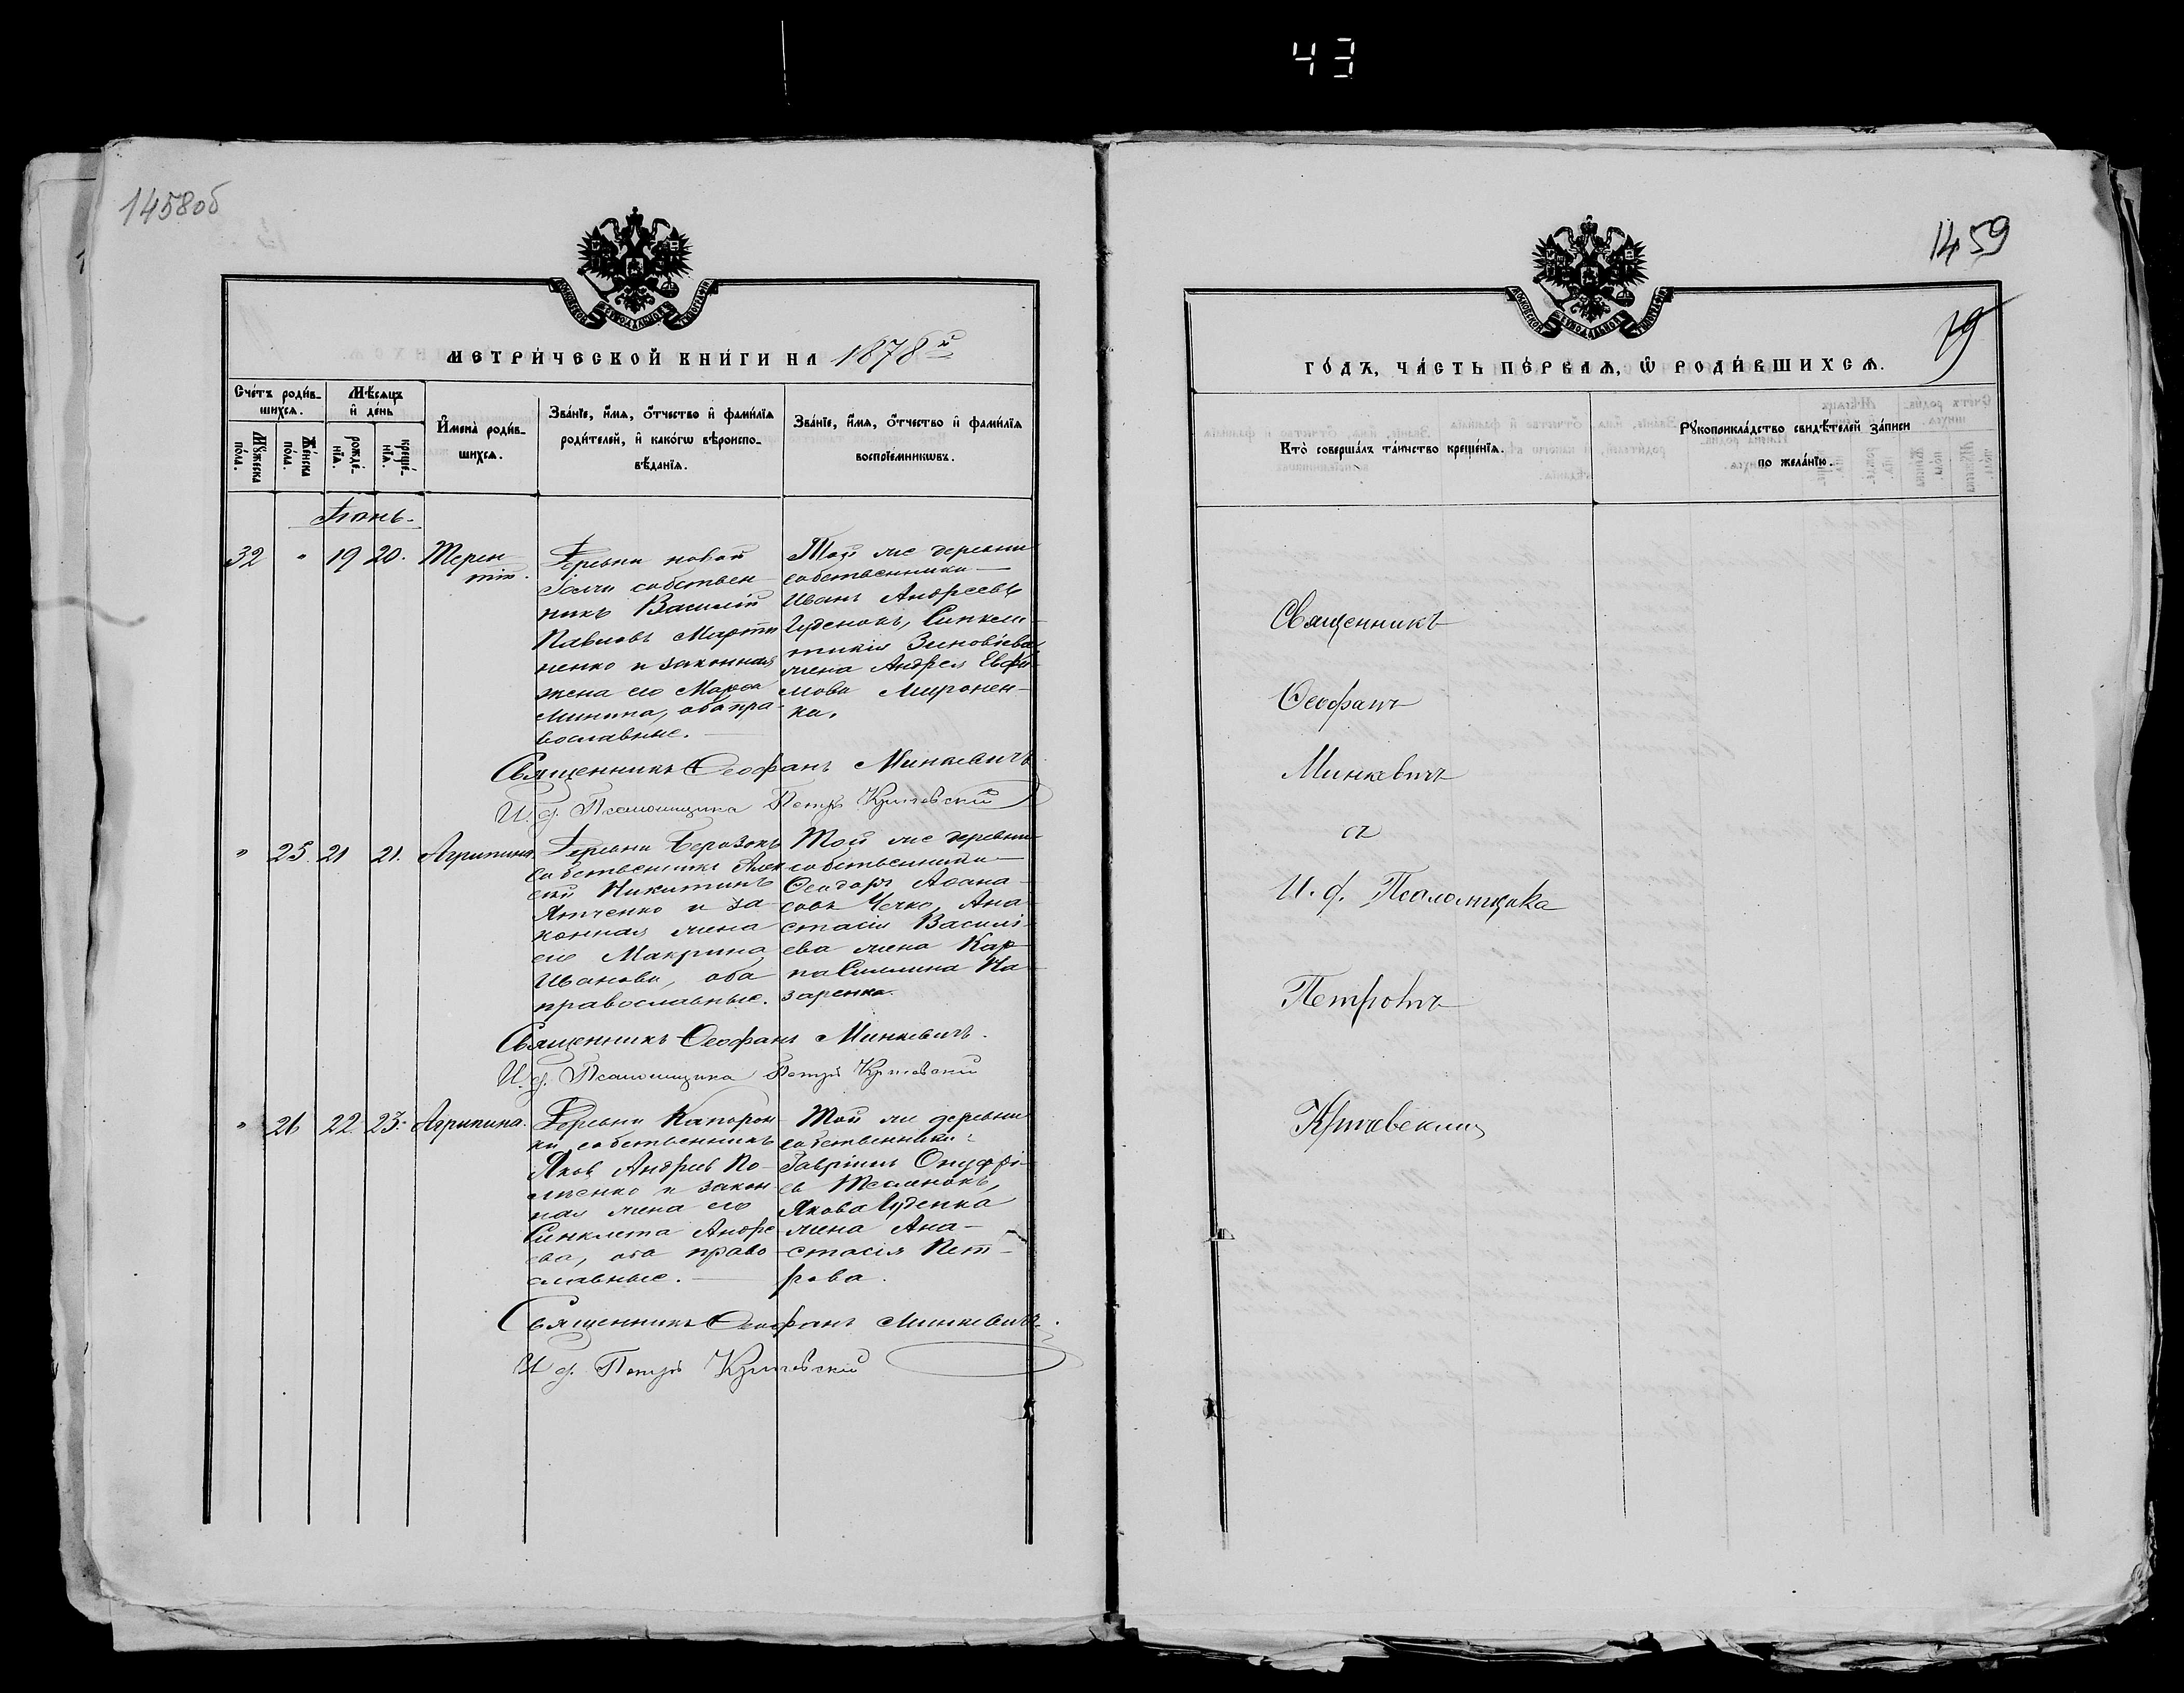 43
1458об
1459
19
МОСКОВСКОЙ СѴНОДАЛЬНОЙ ТИПОГРАФІИ
МЕТРИ́ЧЕСКОЙ КНИ́ГИ НА 1878й
Сче́тъ роди́вшихсѧ.
Мѣ́сѧцъ и҆ де́нь
Мꙋ́жеска по́ла.
Же́нска по́ла.
рожде́нїѧ.
креще́нїѧ.
И҆мена̀ роди́вшихсѧ.
Зва́нїе, и҆́мѧ, ѻ҆́тчество и҆ фами́лїѧ
роди́телей, и҆ како́гѡ вѣроиспо-
вѣ́данїѧ.
Зва́нїе, и҆́мѧ, ѻ҆́тчество и҆ фами́лїѧ
воспрїе́мникѡвъ.
Іюнь.
32 " 19 20. Терен-
тій.
Деревни новой
собствен-
никъ Василій
Павловъ Марти-
ненко и законная
жена его Марѳа
Минина, оба пра-
вославные.
Той же деревни
собственники
Иванъ Андреевъ
Гуденокъ, Синкли-
тикія Зиновіева
жена Андрея Евфи-
мова Миронен-
ка.
Священникъ Ѳеофанъ Минкевичъ
И. д. Псаломщика Петръ Кричевскій
" 25. 21 21. Агрипина.
Деревни Берозокъ
собственникъ Алек-
сѣй Никитинъ
Ятченко и за-
конная жена
его Макрина
Иванова, оба
православные.
Той же деревни
собственники
Ѳеодоръ Аѳана-
совъ Чечко, Ана-
стасія Василі-
ева жена Кар-
па Симина На-
заренка.
Священникъ Ѳеофанъ Минкевичъ.
И. д. Псаломщика Петръ Кричевскій
" 26 22. 23. Агрипина.
Деревни Капорон-
ки собственникъ
Яковъ Андреевъ
и закон-
ная жена его
Синклета Андре-
ева, оба право-
славные.
Той же деревни
собственники:
Гавріилъ Онуфрі-
евъ
Якова Гуденка
жена Ана-
стасія Пет-
рова.
Священникъ Ѳеофанъ Минкевичъ.
И. д. Петръ Кричевскій
МОСКОВСКОЙ СѴНОДАЛЬНОЙ ТИПОГРАФІИ
ГО́ДЪ, ЧА́СТЬ ПЕ́РВАѦ, Ѡ҆ РОДИ́ВШИХСѦ.
Кто̀ соверша́лъ та́инство креще́нїѧ.
Рꙋкоприкла́дство свидѣ́телей за́писи
по жела́нїю.
Священникъ
Ѳеофанъ
Минкевичъ
съ
И. д. Псаломщика
Петромъ
Кричевскимъ